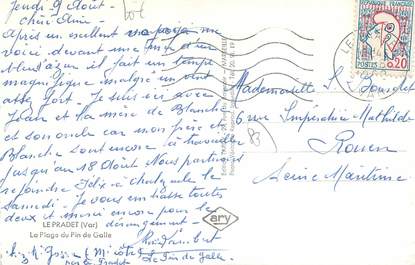 Jeudi 9 Août.
chère Amie.
Après un excellent voyage me
voici devant une mer et un
bleu d'azur il fait un temps
magnifique malgré un vent
assez fort. Je suis ici avec
Jean et la mère de Blanche
et son oncle car mon frère et
Blanche sont encore à travailler
jusqu'au 18 Août. Nous partirons
rejoindre Félix à
Samedi. Je vous embrasse toutes
deux et merci encore pour le
dérangement.
LE PRADET (Var)
La Plage du Pin de Galle
le Pradet
Le Pin de Galle
ary
REPUBLIQUE FRANÇAISE
POSTES
0,20
Mademoiselle S.
6 rue Impératrice Mathilde
Rouen
Seine Maritime